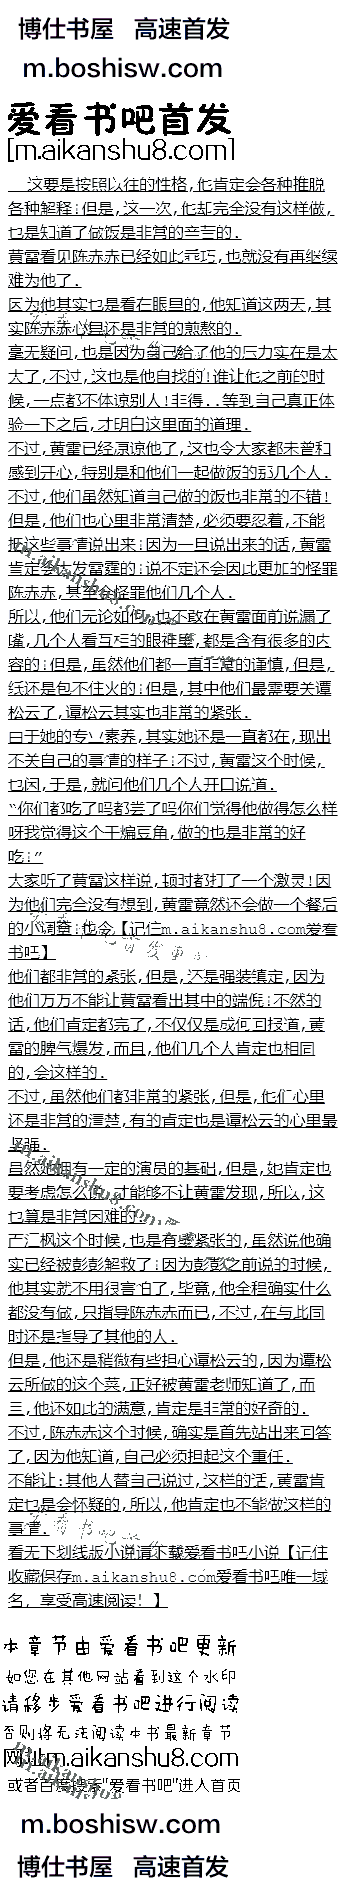 博仕书屋 高速首发
m.boshisw.com
爱看书吧首发
[m.aikanshu8.com]
这要是按照以往的性格,他肯定会各种推脱
各种解释;但是,这一次,他却完全没有这样做,
也是知道了做饭是非常的辛苦的.
黄雷看见陈赤赤已经如此乖巧,也就没有再继续
难为他了.
因为他其实也是看在眼里的,他知道这两天,其
实陈赤赤心里还是非常的煎熬的.
毫无疑问,也是因为自己给了他的压力实在是太
大了,不过,这也是他自找的!谁让他之前的时
候,一点都不体谅别人!非得..等到自己真正体
验一下之后,才明白这里面的道理.
不过,黄雷已经原谅他了,这也令大家都未曾和
感到开心,特别是和他们一起做饭的那几个人.
不过,他们虽然知道自己做的饭也非常的不错!
但是,他们也心里非常清楚,必须要忍着,不能
把这些事情说出来;因为一旦说出来的话,黄雷
肯定会大发雷霆的;说不定还会因此更加的怪罪
陈赤赤,甚至会怪罪他们几个人.
所以,他们无论如何,也不敢在黄雷面前说漏了
嘴,几个人看互相的眼神里,都是含有很多的内
容的;但是,虽然他们都一直非常的谨慎,但是,
纸还是包不住火的;但是,其中他们最需要关谭
松云了,谭松云其实也非常的紧张.
由于她的专业素养,其实她还是一直都在,现出
不关自己的事情的样子;不过,黄雷这个时候,
也闲,于是,就问他们几个人开口说道.
“你们都吃了吗都尝了吗你们觉得他做得怎么样
呀我觉得这个干煸豆角,做的也是非常的好
吃;”
大家听了黄雷这样说,顿时都打了一个激灵!因
为他们完全没有想到,黄雷竟然还会做一个餐后
的小调查;也令【记住m.aikanshu8.com爱看
书吧】
他们都非常的紧张,但是,还是强装镇定,因为
他们万万不能让黄雷看出其中的端倪;不然的
话,他们肯定都完了,不仅仅是成何回报道,黄
雷的脾气爆发,而且,他们几个人肯定也相同
的,会这样的.
不过,虽然他们都非常的紧张,但是,他们心里
还是非常的清楚,有的肯定也是谭松云的心里最
坚强.
虽然她拥有一定的演员的基础,但是,她肯定也
要考虑怎么做,才能够不让黄雷发现,所以,这
也算是非常困难的.
芒江枫这个时候,也是有些紧张的,虽然说他确
实已经被彭彭解救了;因为彭彭之前说的时候,
他其实就不用很害怕了,毕竟,他全程确实什么
都没有做,只指导陈赤赤而已,不过,在与此同
时还是指导了其他的人.
但是,他还是稍微有些担心谭松云的,因为谭松
云所做的这个菜,正好被黄雷老师知道了,而
且,他还如此的满意,肯定是非常的好奇的.
不过,陈赤赤这个时候,确实是首先站出来回答
了,因为他知道,自己必须担起这个重任.
不能让:其他人替自己说过,这样的话,黄雷肯
定也是会怀疑的,所以,他肯定也不能做这样的
事情.
看无下划线版小说请下载爱看书吧小说【记住
收藏保存m.aikanshu8.com爱看书吧唯一域
名，享受高速阅读！】
本章节由爱看书吧更新
如您在其他网站看到这个水印
请移步爱看书吧进行阅读
否则将无法阅读本书最新章节
网址m.aikanshu8.com
或者百度搜索"爱看书吧"进入首页
m.boshisw.com
博仕书屋 高速首发